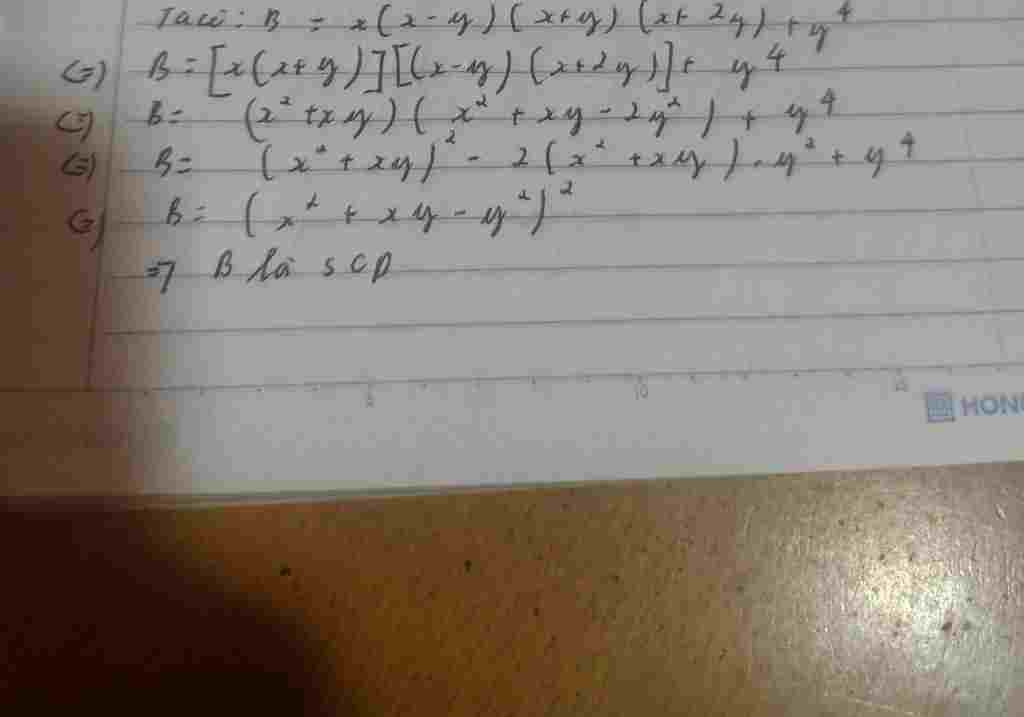 Ta có: B = x(x-y)(x+y)(x+2y)+y⁴
(=) B=[x(x+y)][(x-y)(x+2y)]+ y⁴
(=) B= (x²+xy)(x²+xy-2y²) + y⁴
(=) B= (x²+xy)²-2(x²+xy).y²+y⁴
(=) B= (x²+xy-y²)²
=> B là SCP
5 10 15
HONG